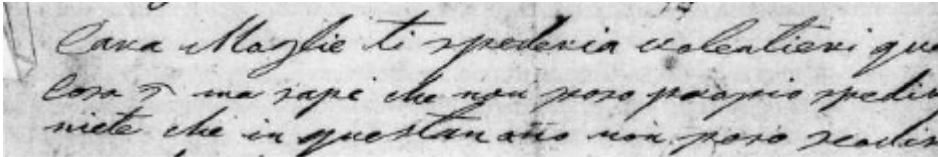 Cara Moglie ti spederia volentieri que
Cosa ma sapi che non poso propio spedir
niete che in questan ano non poso